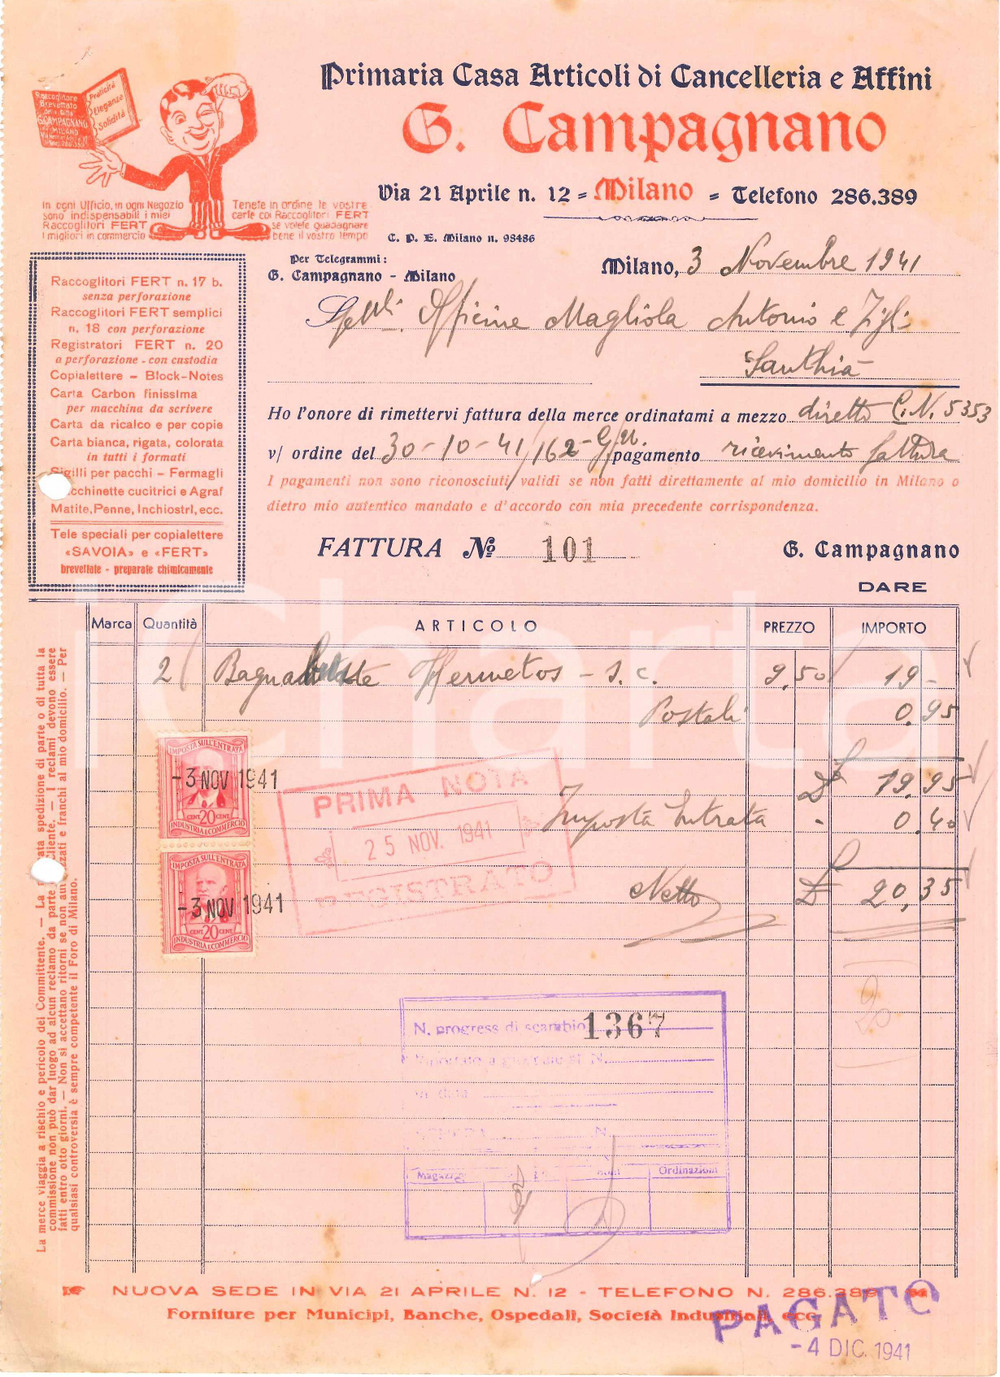 Primaria Casa Articoli di Cancelleria e Affini
G. Campagnano
Via 21 Aprile n. 12 = Milano = Telefono 286.389
C. P. E. Milano n. 98486
Raccoglitore
Brevettato
G. CAMPAGNANO
MILANO
Praticità
Eleganza
Solidità
In ogni Ufficio, in ogni Negozio
sono indispensabili i miei
Raccoglitori FERT
i migliori in commercio
Tenete in ordine le vostre
carte coi Raccoglitori FERT
se volete guadagnare
bene il vostro tempo
Per Telegrammi:
G. Campagnano - Milano
Milano, 3 Novembre 1941
Spett. Officine Magliola Antonio e Figli
Santhià
Ho l'onore di rimettervi fattura della merce ordinatami a mezzo diretto C.N. 5353
v/ ordine del 30-10-41/162-GM. pagamento ricevimento fattura
I pagamenti non sono riconosciuti validi se non fatti direttamente al mio domicilio in Milano o
dietro mio autentico mandato e d'accordo con mia precedente corrispondenza.
FATTURA No 101
G. Campagnano
DARE
Raccoglitori FERT n. 17 b.
senza perforazione
Raccoglitori FERT semplici
n. 18 con perforazione
Registratori FERT n. 20
a perforazione - con custodia
Copialettere - Block-Notes
Carta Carbon finissima
per macchina da scrivere
Carta da ricalco e per copie
Carta bianca, rigata, colorata
in tutti i formati
Sigilli per pacchi - Fermagli
cchinette cucitrici e Agraf
Matite, Penne, Inchiostri, ecc.
Tele speciali per copialettere
«SAVOIA» e «FERT»
brevettate - preparate chimicamente
Marca Quantità ARTICOLO PREZZO IMPORTO
2 Hermetos - s.c. 9,50 19 -
Postali 0,95
£ 19,95
Imposta Entrata - 0.40
Netto £ 20,35
IMPOSTA SULL'ENTRATA
-3 NOV 1941
CENT 20 CENT
INDUSTRIA E COMMERCIO
IMPOSTA SULL'ENTRATA
-3 NOV 1941
CENT 20 CENT
INDUSTRIA E COMMERCIO
PRIMA NOTA
25 NOV. 1941
REGISTRATO
N. progress di scambio 1367
in data
N.
Magazz. Ordinazioni
La merce viaggia a rischio e pericolo del Committente. — La spedizione di parte o di tutta la
commissione non può dar luogo ad alcun reclamo da parte Cliente. — I reclami devono essere
fatti entro otto giorni. — Non si accettano ritorni se non e franchi al mio domicilio. — Per
qualsiasi controversia è sempre competente il Foro di Milano.
NUOVA SEDE IN VIA 21 APRILE N. 12 - TELEFONO N. 286.389
Forniture per Municipi, Banche, Ospedali, Società Industriali, ecc.
PAGATO
-4 DIC. 1941
iCharta